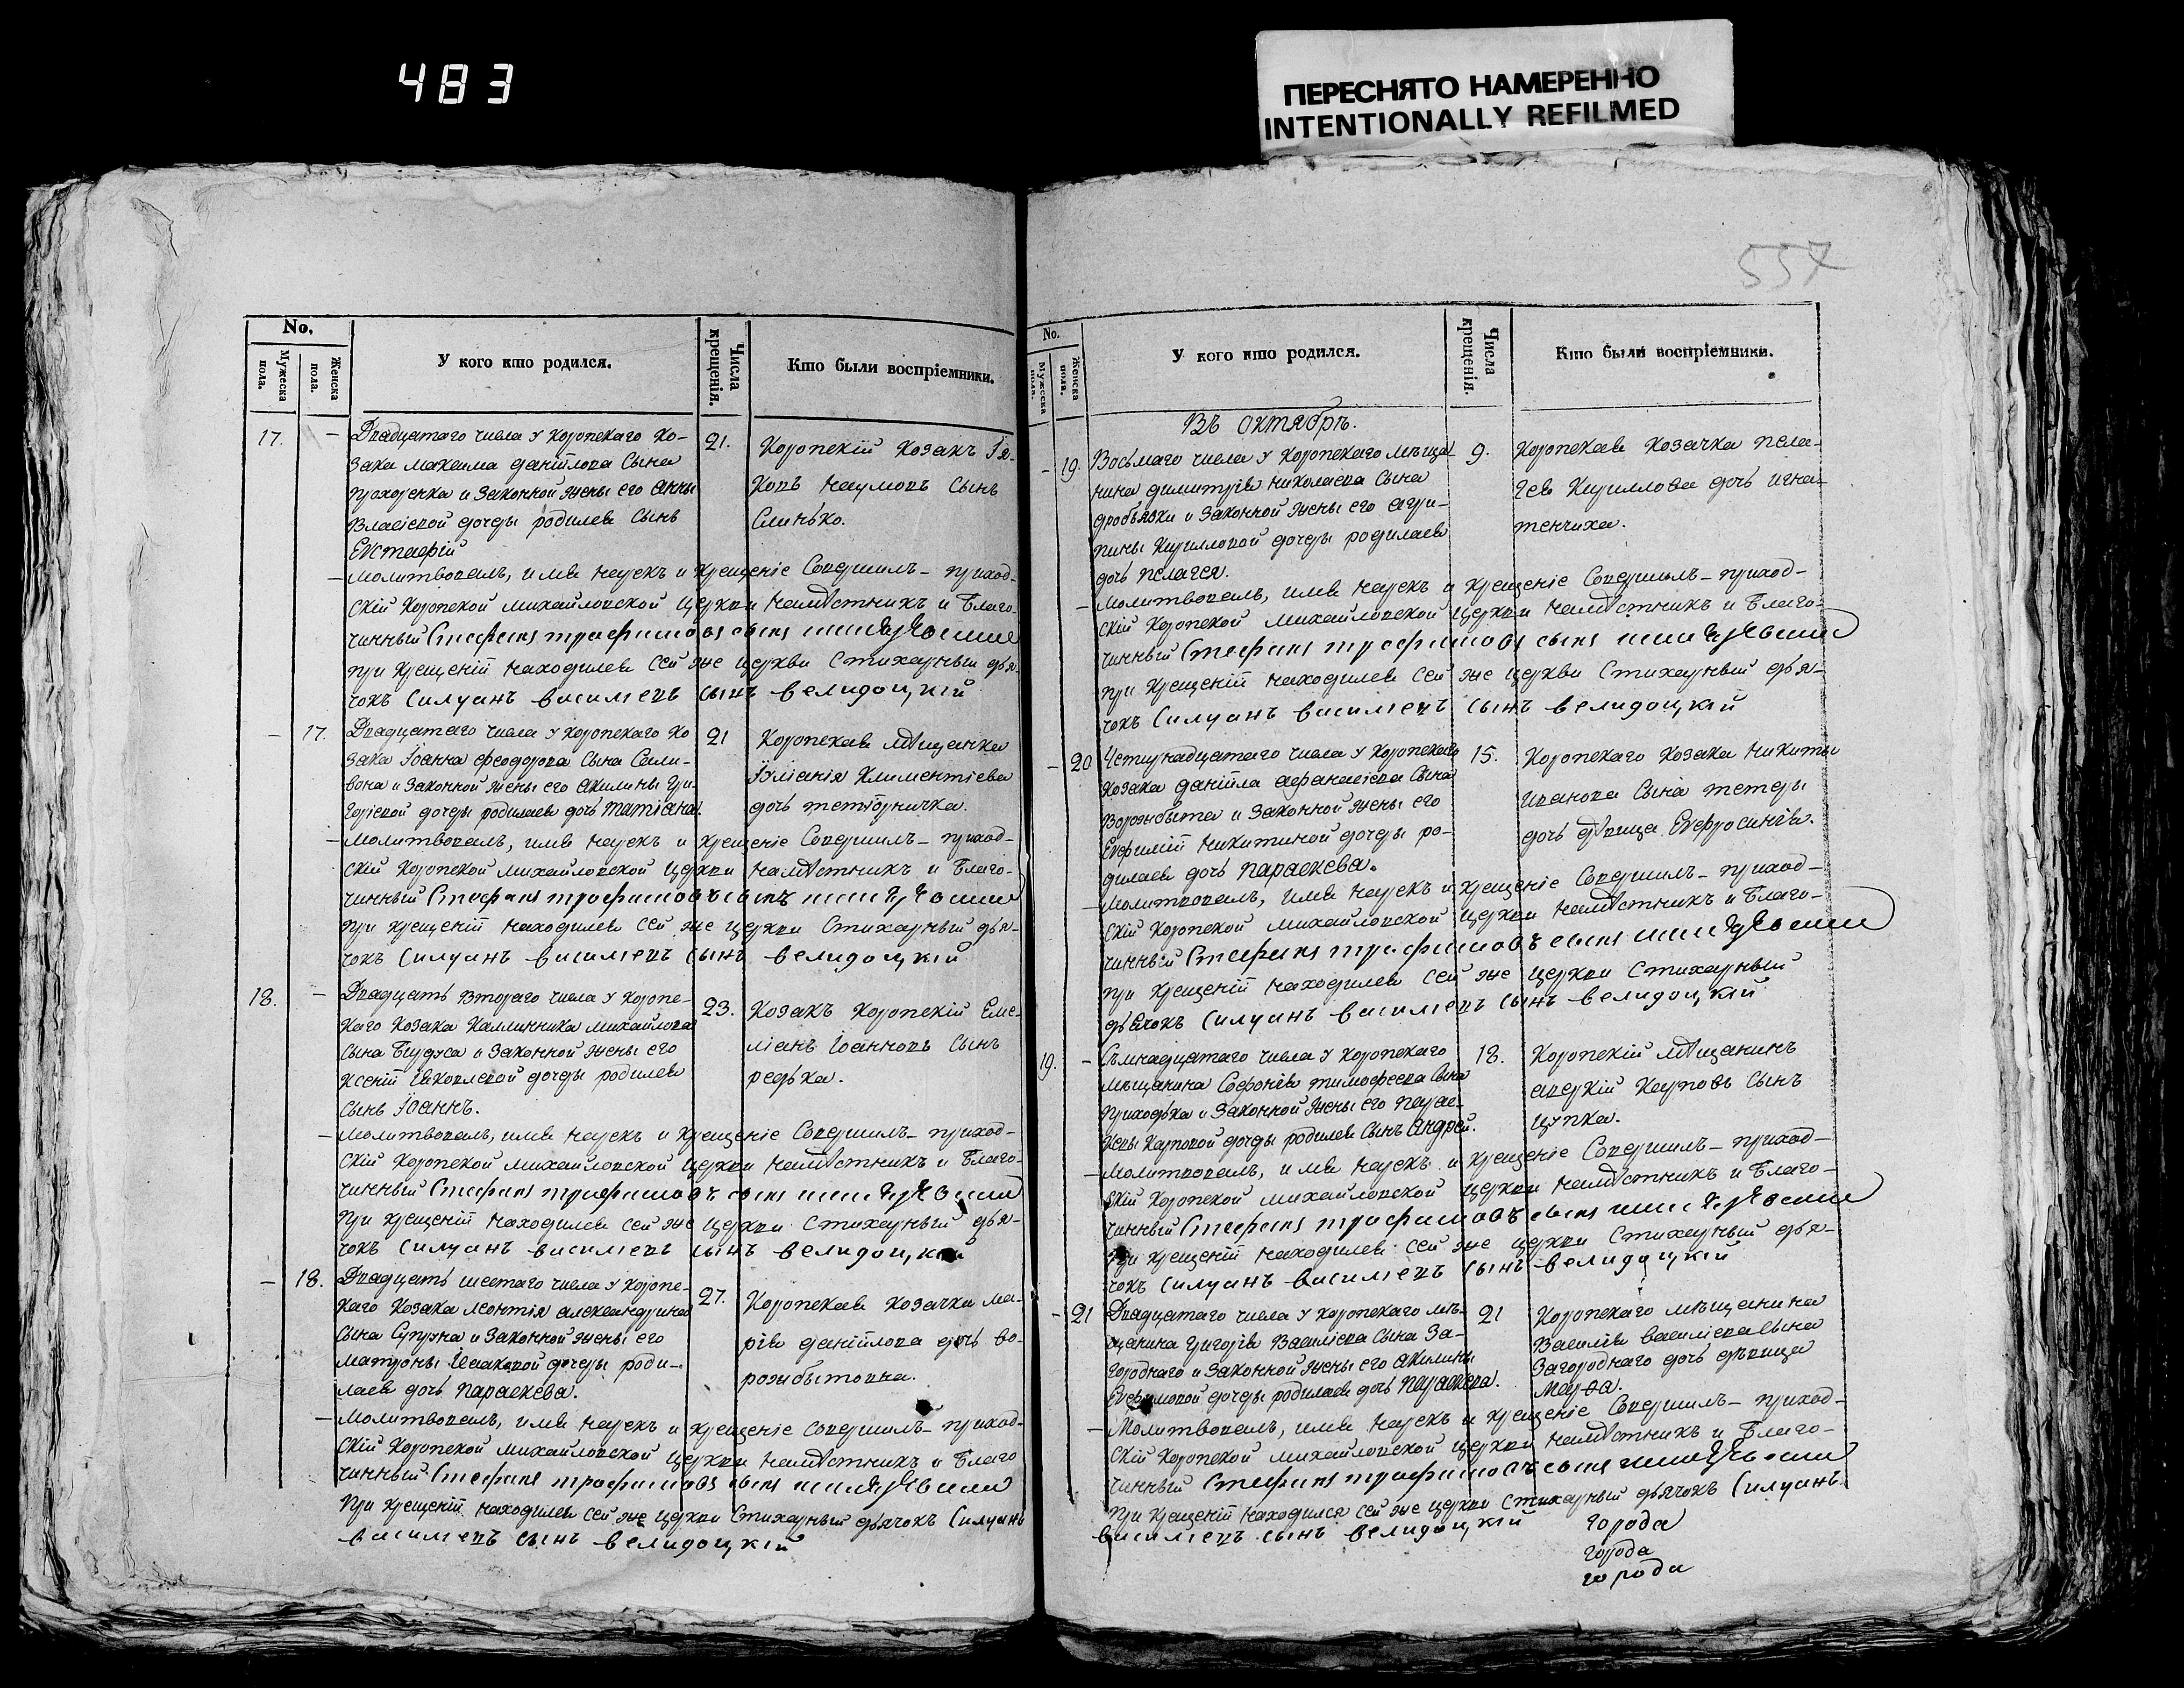 483
ПЕРЕСНЯТО НАМЕРЕННО
INTENTIONALLY REFILMED
557
No.
Мужеска пола.
Женска пола.
У кого кто родился.
Числа крещенія.
Кто были воспріемники.
17. –
Двадцатаго числа у Коропскаго Ко-
зака Максима Даніилова сына
Прохоренка и законной жены его Анны
Власіевой дочеры родился сынъ
Евстафій
21.
Коропскій Козакъ Іа-
ковъ Наумовъ сынъ
Слинько.
– Молитвовалъ, имя нарекъ и крещеніе совершилъ – приход-
скій Коропской Михайловской церкви намѣстникъ и благо-
чинный Стефанъ Трофимовъ сынъ
при крещеніи находился сей же церкви стихарный дья-
чокъ Силуанъ Василіевъ сынъ Велидоцкій
– 17.
Двадцатаго числа у Коропскаго Ко
зака Іоанна Феодорова сына Сели-
вона и законной жены его Акилины Гри-
горіевой дочеры родилася дочь Татіана.
21
Коропская мѣщанка
Іуліанія Климентіева
дочь
– Молитвовалъ, имя нарекъ и крещеніе совершилъ – приход-
скій Коропской Михайловской церкви намѣстникъ и благо-
чинный Стефанъ Трофимовъ сынъ
при крещеніи находился сей же церкви стихарный дья-
чокъ Силуанъ Василіевъ сынъ Велидоцкій
18. –
Двадцать втораго числа у Коропс-
каго Козака Каллиника Михайлова
сына и законной жены его
Ксеніи Іаковлевой дочеры родился
сынъ Іоаннъ.
23.
Козакъ Коропскій Еме-
ліанъ Іоанновъ сынъ
редька.
– Молитвовалъ, имя нарекъ и крещеніе совершилъ – приход-
скій Коропской Михайловской церкви намѣстникъ и благо-
чинный Стефанъ Трофимовъ сынъ
при крещеніи находился сей же церкви стихарный дья-
чокъ Силуанъ Василіевъ сынъ Велидоцкій
– 18.
Двадцать шестаго числа у Коропс-
каго Козака Леонтія Александрина
сына Супруна и законной жены его
Матроны Исааковой дочеры роди-
лася дочь Параскева.
27.
Коропская Козачка Ма-
рія Даніилова дочь Во-
рожбитовна.
– Молитвовалъ, имя нарекъ и крещеніе совершилъ – приход-
скій Коропской Михайловской церкви намѣстникъ и благо
чинный Стефанъ Трофимовъ сынъ
При крещеніи находился сей же церкви стихарный дьячокъ Силуанъ
Василіевъ сынъ Велидоцкій
No.
Мужеска пола.
Женска пола.
У кого кто родился.
Числа крещенія.
Кто были воспріемники.
Въ октябрѣ.
– 19.
Восьмаго числа у Коропскаго мѣща
нина Димитрія Николаева сына
дробьязки и законной жены его Агри-
пины Кирилловой дочеры родилася
дочь Пелагея.
9.
Коропская Козачка Пела-
гея Кириллова дочь Игна-
тенчиха.
– Молитвовалъ, имя нарекъ и крещеніе совершилъ – приход-
скій Коропской Михайловской церкви намѣстникъ и благо-
чинный Стефанъ Трофимовъ сынъ
при крещеніи находился сей же церкви стихарный дья-
чокъ Силуанъ Василіевъ сынъ Велидоцкій
– 20
Четырнадцатаго числа у Коропскаго
Козака Даніила Афанасіева сына
Ворожбита и законной жены его
Евфиміи Никитиной дочеры ро-
дилася дочь Параскева.
15.
Коропскаго Козака Никиты
Иванова сына тетеры
дочь дѣвица Евфросинія.
– Молитвовалъ, имя нарекъ и крещеніе совершилъ – приход-
скій Коропской Михайловской церкви намѣстникъ и благо-
чинный Стефанъ Трофимовъ сынъ
при крещеніи находился сей же церкви стихарный
дьячокъ Силуанъ Василіевъ сынъ Велидоцкій
19. –
Семнадцатаго числа у Коропскаго
мѣщанина Софронія Тимофеева сына
Приходька и законной жены его Парас-
кевы Карповой дочеры родился сынъ Андрей.
18.
Коропскій мѣщанинъ
Аверкій Карповъ сынъ
цупка.
– Молитвовалъ, имя нарекъ и крещеніе совершилъ – приход-
скій Коропской Михайловской церкви намѣстникъ и благо-
чинный Стефанъ Трофимовъ сынъ
при крещеніи находился сей же церкви стихарный дья-
чокъ Силуанъ Василіевъ сынъ Велидоцкій
– 21
Двадцатаго числа у Коропскаго мѣ-
щанина Григорія Василіева сына За-
городнаго и законной жены его Акилины
Евфимовой дочеры родилася дочь Параскева.
21
Коропскаго мѣщанина
Василія Василіева сына
Загороднаго дочь дѣвица
Марѳа.
– Молитвовалъ, имя нарекъ и крещеніе совершилъ – приход-
скій Коропской Михайловской церкви намѣстникъ и благо-
чинный Стефанъ Трофимовъ сынъ
при крещеніи находился сей же церкви стихарный дьячокъ Силуанъ
Василіевъ сынъ Велидоцкій
города
города
города